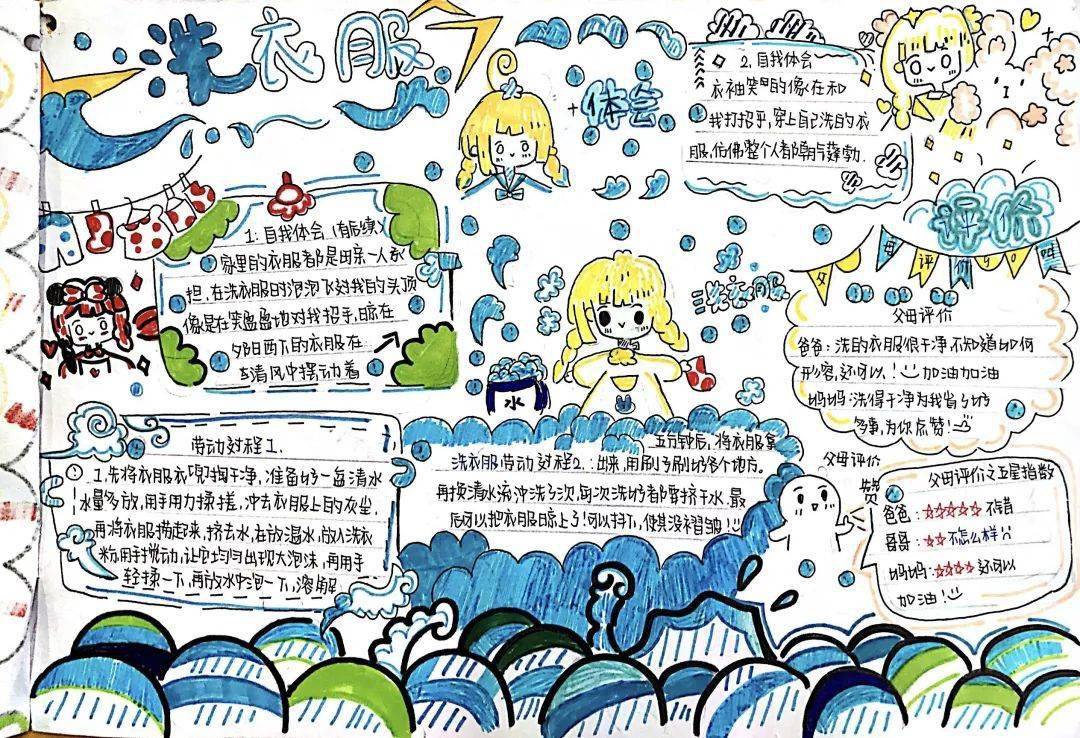 洗衣服
体会
2.自我体会
衣袖笑眯眯的像在和
我打招乎,穿上自己洗的衣
服,仿佛整个人都朝气蓬勃.
评价
父母评价
1.自我体会(有后续)
家里的衣服都是母亲一人承
担,在洗衣服时泡泡飞过我的头顶
像是在笑盈盈地对我招手,晾在
夕阳西下的衣服在
清风中摆动着
洗衣服
水
父母评价
爸爸:洗的衣服很干净不知道如何
形容,还可以!加油加油
妈妈:洗得干净为我省了好
多事,为你点赞!
劳动过程1.
1.先将衣服衣兜掏干净,准备好一盆清水
水量多放,用手用力揉搓,冲去衣服上的灰尘,
再将衣服捞起来,挤去水,在放温水,放入洗衣
粉用手搅动,让它均匀出现大泡沫,再用手
轻揉一下,再放水中泡一下,溶解
五分钟后,将衣服拿
洗衣服劳动过程2.:出来,用刷子刷好各个地方。
再换清水流冲洗3次,每次洗好都要挤干水,最
后可以把衣服晾上了!可以抖下,使其没褶皱!!!
父母评价
赞
父母评价之五星指数
爸爸:☆☆☆☆☆不错
哥哥:☆☆不怎么样
妈妈:☆☆☆☆还可以
加油!